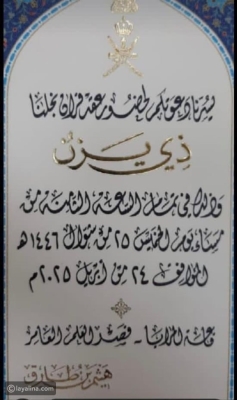 يسرنا دعوتكم لحضور عقد قران نجلنا
ذي يزن
وذلك في تمام الساعة الثامنة من
مساء يوم الخميس ٢٥ من شوال ١٤٤٦هـ
الموافق ٢٤ من أبريل ٢٠٢٥م
قصر العلم العامر
هيثم بن طارق
layalina.com